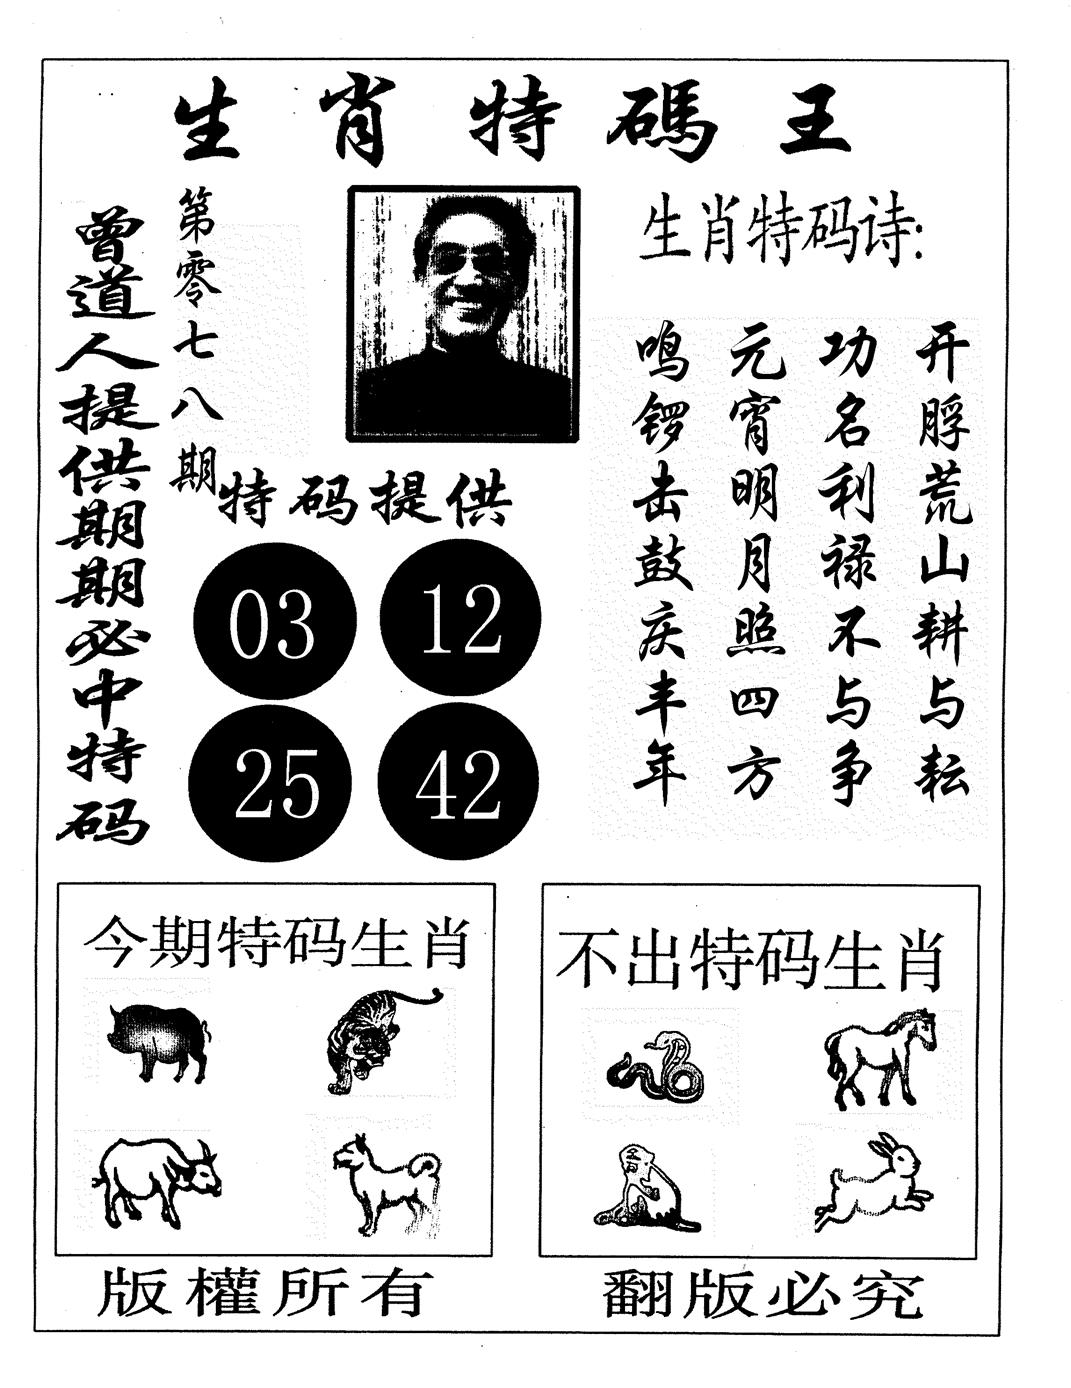 生肖特碼王
曾道人提供期期必中特码
第零七八期
生肖特码诗:
开脬荒山耕与耘
功名利禄不与争
元宵明月照四方
鸣锣击鼓庆丰年
特码提供
03 12
25 42
今期特码生肖
不出特码生肖
版權所有
翻版必究